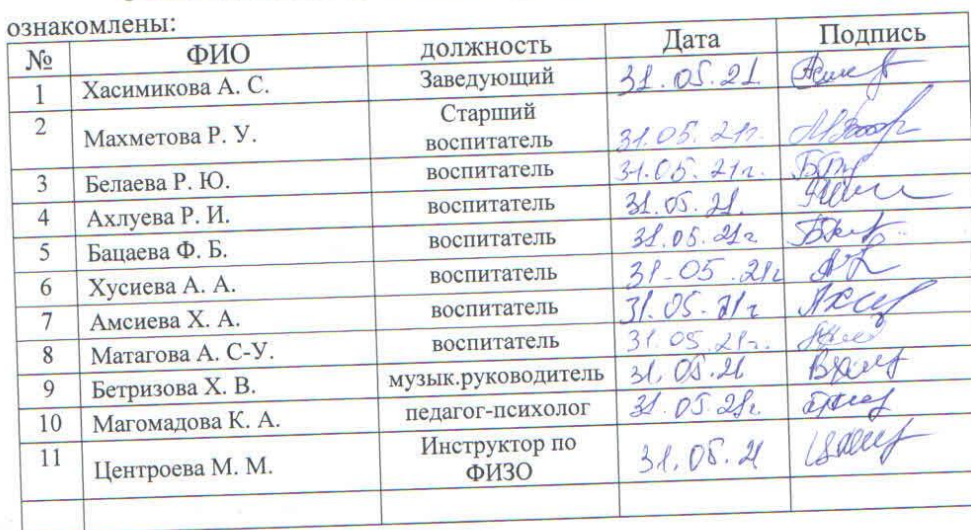 ознакомлены:
№ ФИО должность Дата Подпись
1 Хасимикова А. С. Заведующий 31.05.21
2 Махметова Р. У. Старший воспитатель 31.05.21г.
3 Белаева Р. Ю. воспитатель 31.05.21г.
4 Ахлуева Р. И. воспитатель 31.05.21.
5 Бацаева Ф. Б. воспитатель 31.05.21г
6 Хусиева А. А. воспитатель 31-05.21г
7 Амсиева Х. А. воспитатель 31.05.21г
8 Матагова А. С-У. воспитатель 31.05.21г.
9 Бетризова Х. В. музык.руководитель 31.05.21
10 Магомадова К. А. педагог-психолог 31.05.21г.
11 Центроева М. М. Инструктор по ФИЗО 31.05.21